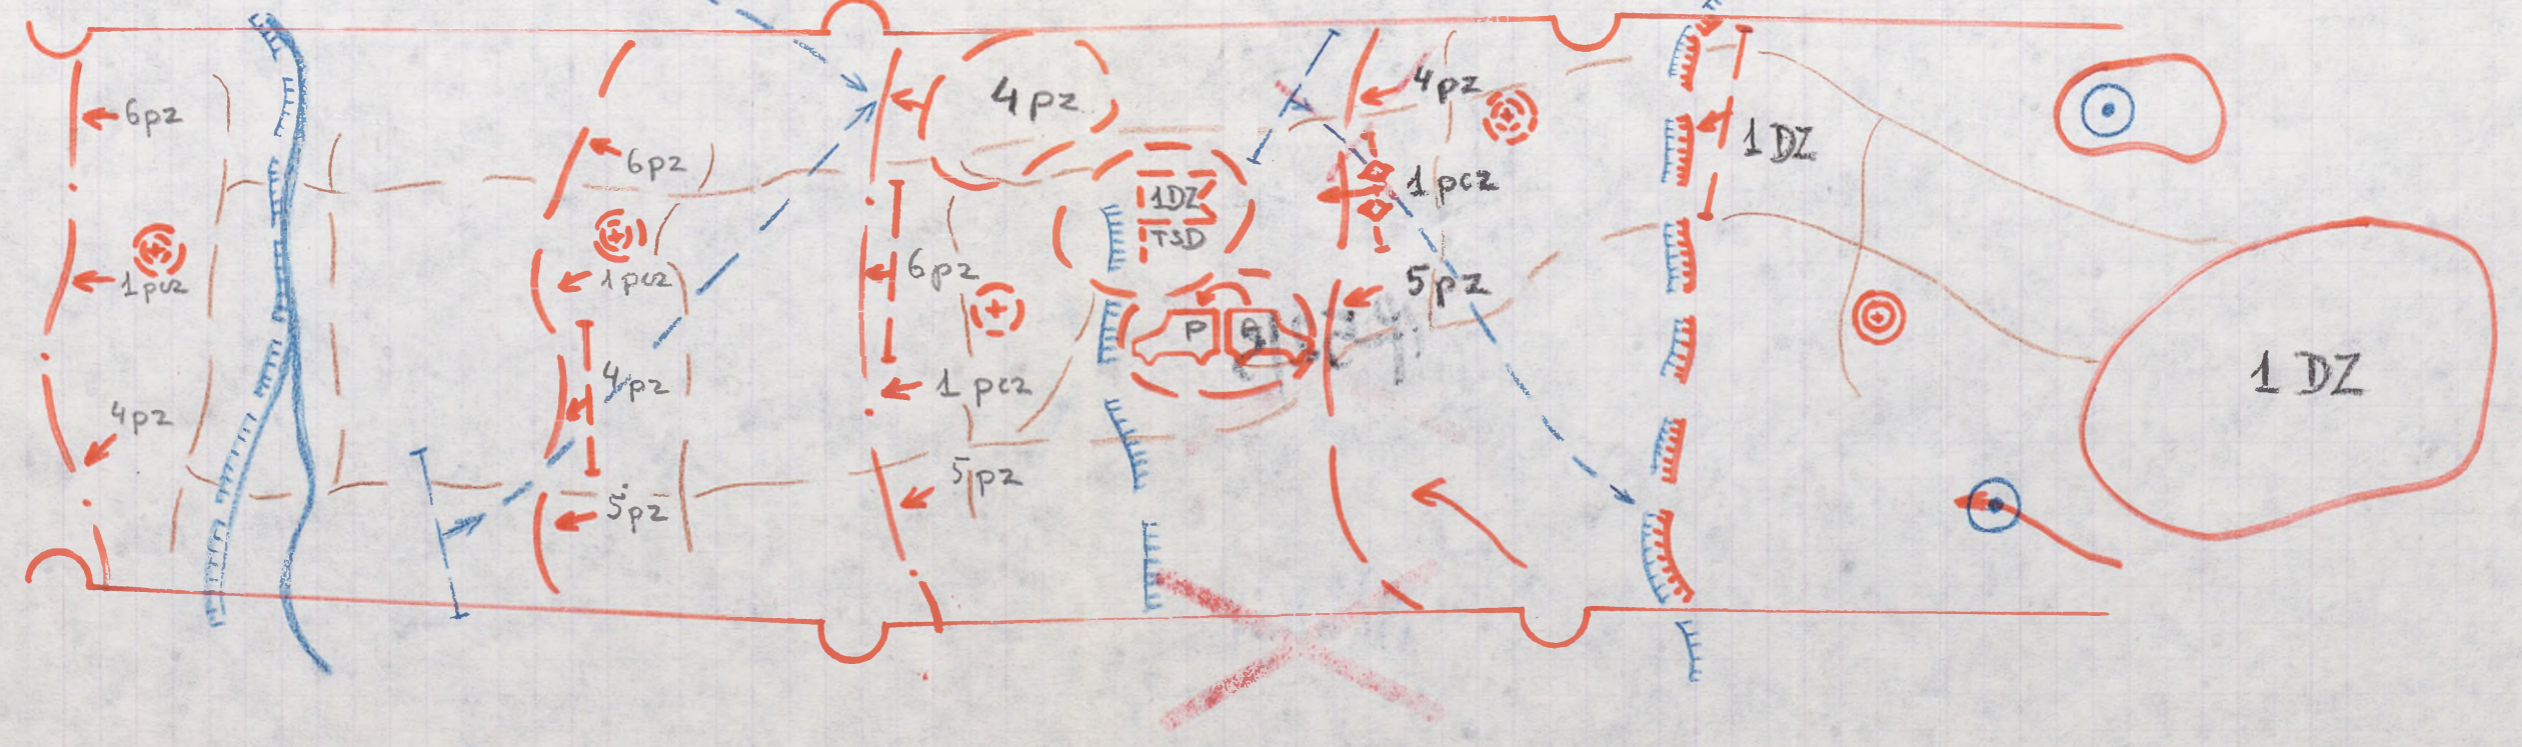 6pz
1pcz
4pz
6pz
1pcz
4pz
5pz
4pz
6pz
1 pcz
5pz
1DZ
TSD
P
4pz
1pcz
5pz
1 DZ
1 DZ